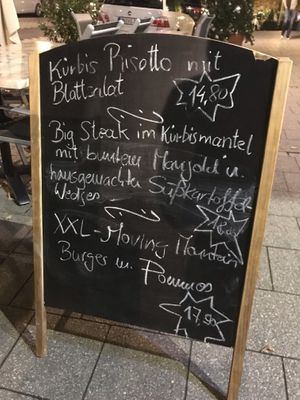 Kürbis Risotto mit
Blattsalat
14,80
Big Steak im Kürbismantel
mit buntem Mangold u.
hausgemachte Süßkartoffel
Wedges
XXL-Moving Mountain
Burger m. Pommes
17,90